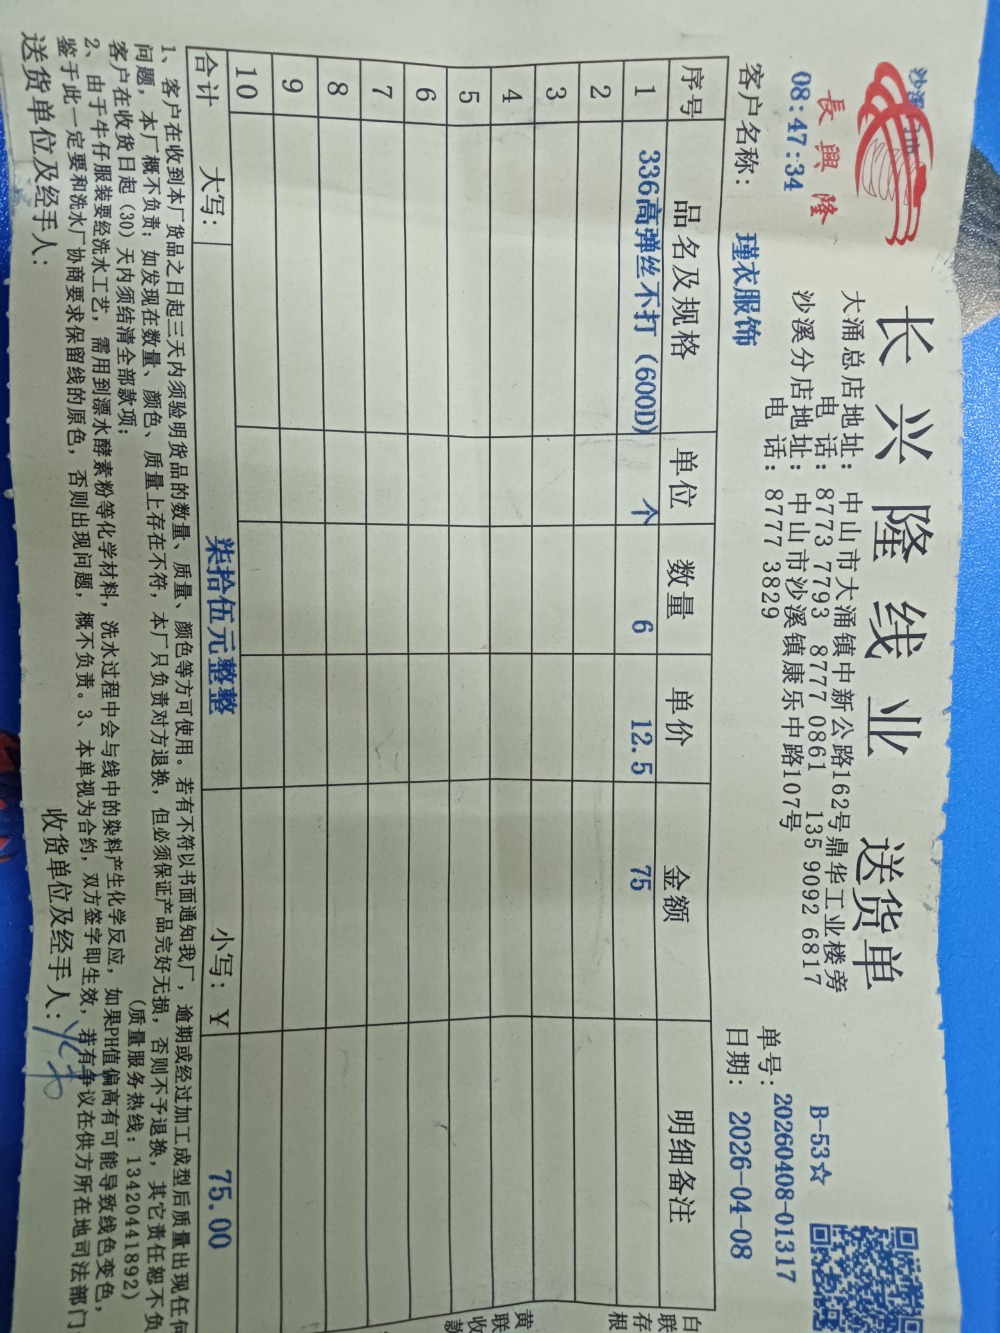 長興隆
08:47:34
长兴隆线业 送货单
大涌总店地址: 中山市大涌镇中新公路162号鼎华工业楼旁
电 话: 8773 7793 8777 0861 135 9092 6817
沙溪分店地址: 中山市沙溪镇康乐中路107号
电 话: 8777 3829
B-53☆
单号: 20260408-01317
客户名称: 瑾衣服饰
日期: 2026-04-08
序号 品名及规格 单位 数量 单价 金额 明细备注
1 336高弹丝不打(600D) 个 6 12.5 75
2
3
4
5
6
7
8
9
10
合计 大写: 柒拾伍元整整 小写: ¥ 75.00
1、客户在收到本厂货品之日起三天内须验明货品的数量、质量、颜色等方可使用。若有不符以书面通知我厂,逾期或经过加工成型后质量出现任何
问题,本厂概不负责;如发现在数量、颜色、质量上存在不符,本厂只负责对方退换,但必须保证产品完好无损,否则不予退换,其它责任恕不负
客户在收货日起(30)天内须结清全部款项; (质量服务热线:13420441892)
2、由于牛仔服装要经洗水工艺,需用到漂水酵素粉等化学材料,洗水过程中会与线中的染料产生化学反应,如果PH值偏高有可能导致线色变色,
鉴于此一定要和洗水厂协商要求保留线的原色,否则出现问题,概不负责。3、本单视为合约,双方签字即生效,若有争议在供方所在地司法部门
送货单位及经手人: 收货单位及经手人:
白联存根
黄联收款